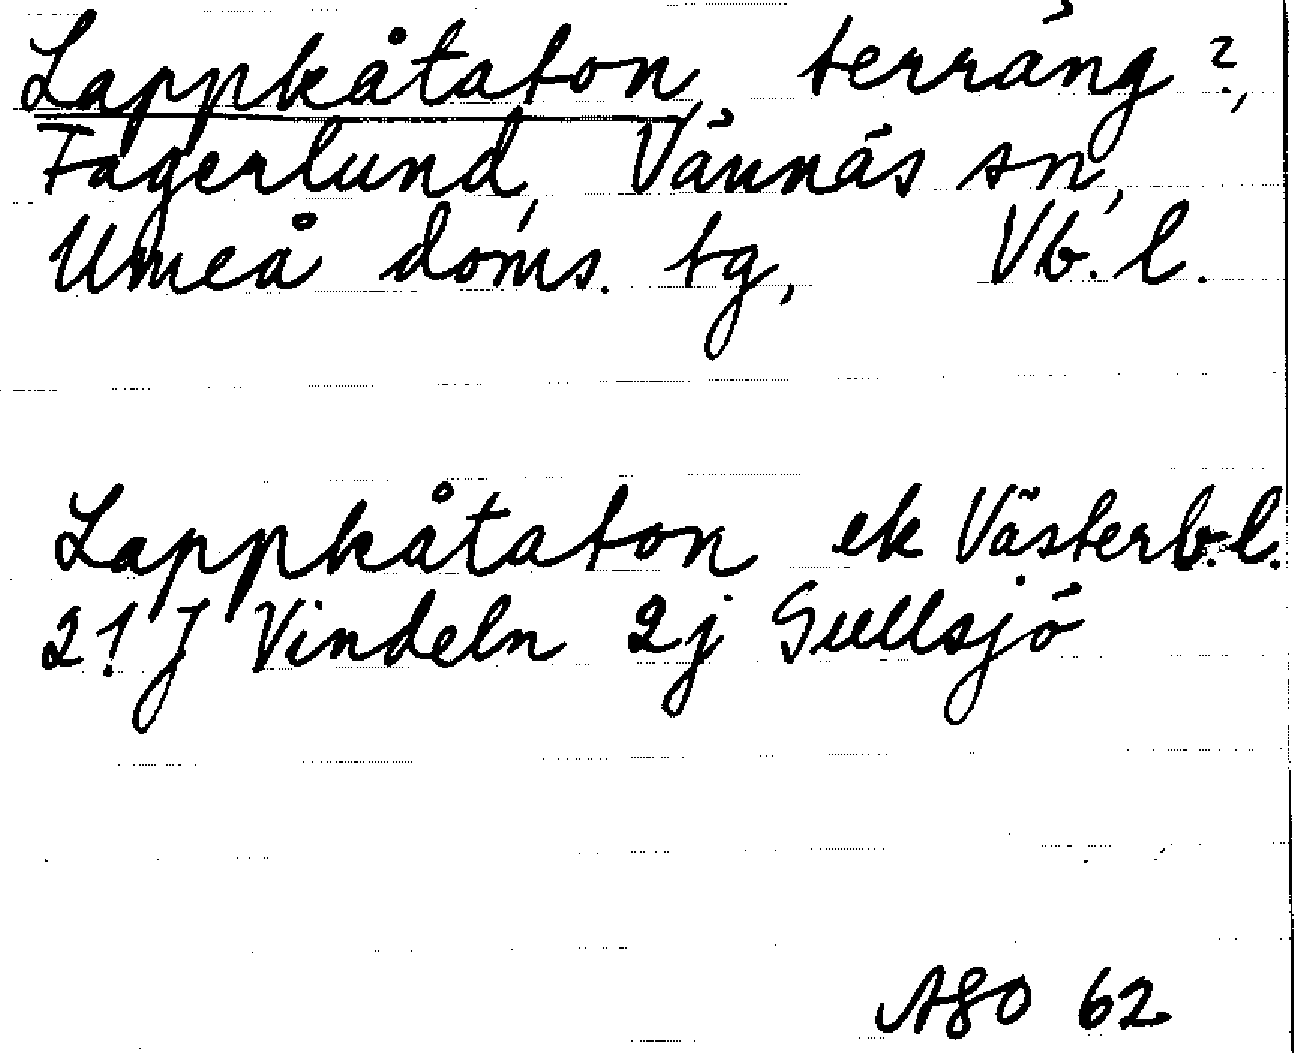 Lappkåtaton, terräng?,
Fagerlund, Vännäs sn,
Umeå doms. tg, Vb. l.
Lappkåtaton ek Västerb.l.
21 J Vindeln 2j Gullsjö
ASO 62